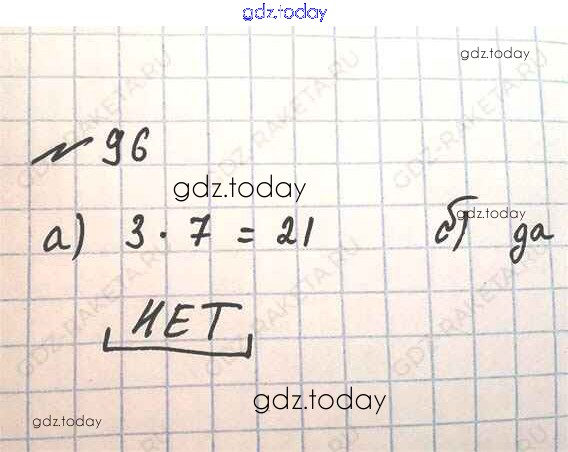 gdz.today
gdz.today
№ 96
gdz.today
а) 3 · 7 = 21 б) да
gdz.today
НЕТ
gdz.today
gdz.today
GDZ-RAKETA.RU